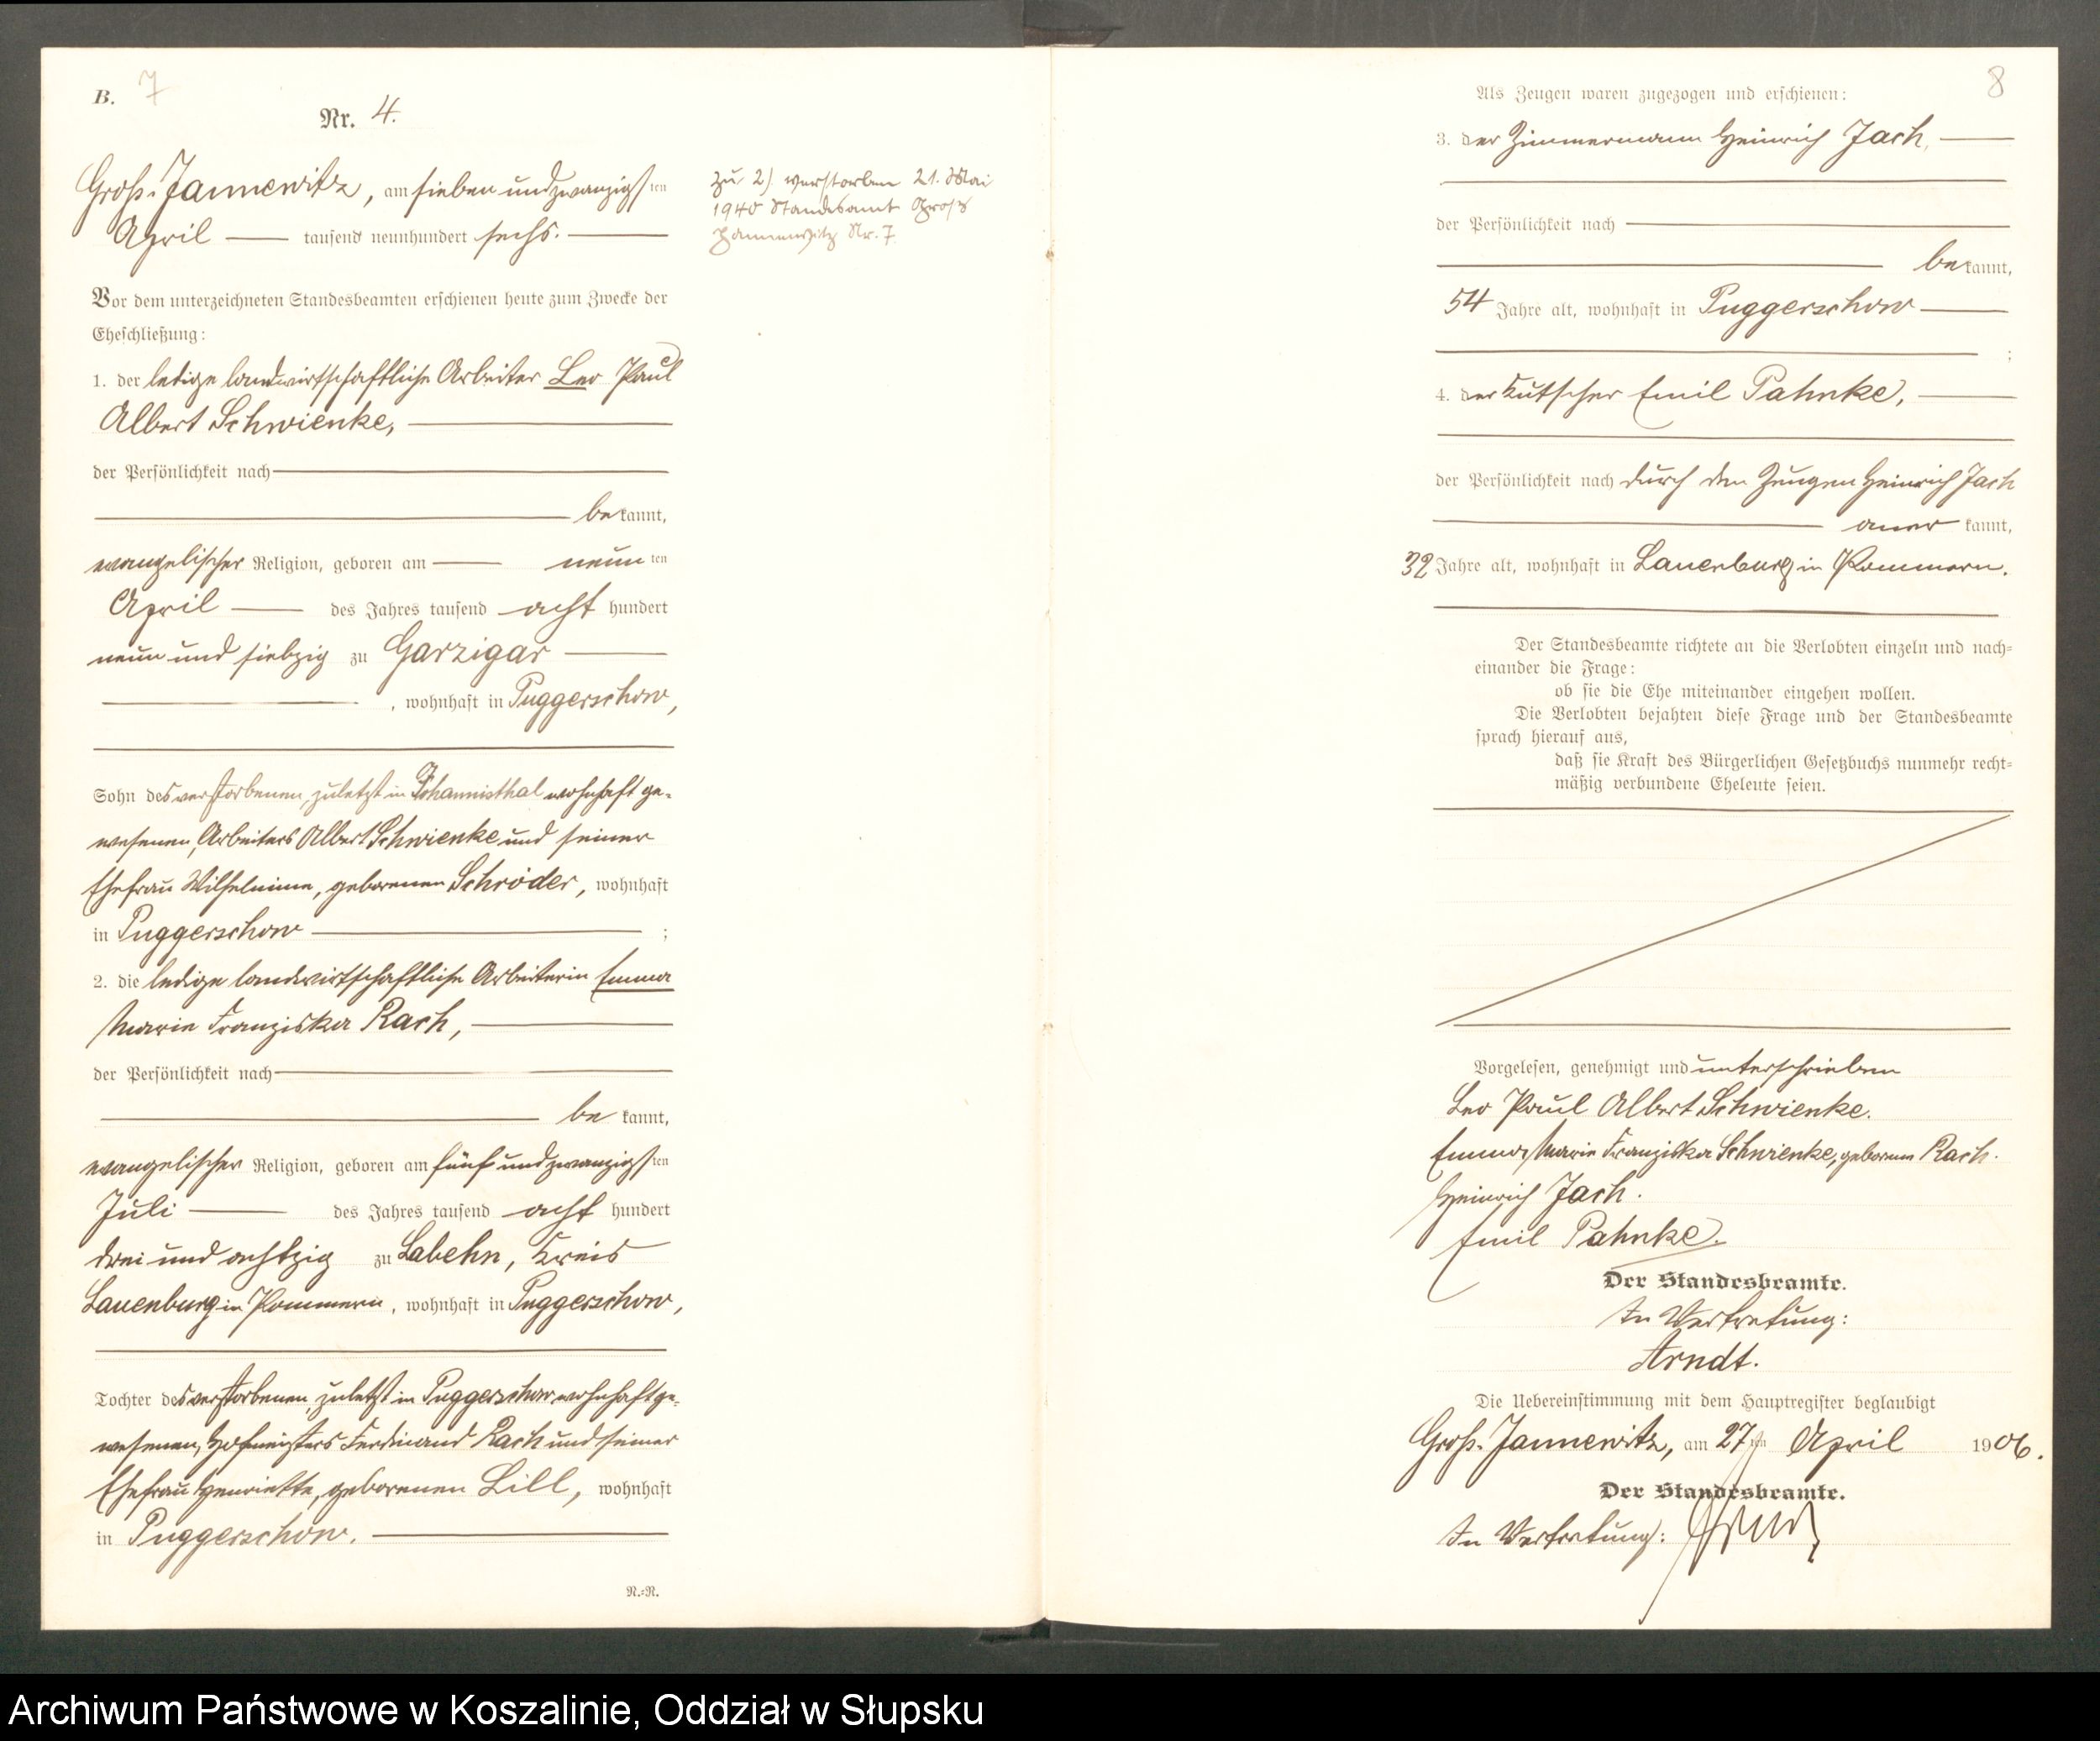 B. 7
Nr. 4.
Groß-Jannewitz, am sieben und zwanzigsten
April tausend neunhundert sechs.
Vor dem unterzeichneten Standesbeamten erschienen heute zum Zwecke der
Eheschließung:
1. der ledige landwirtschaftliche Arbeiter Leo Paul
Albert Schwienke,
der Persönlichkeit nach
bekannt,
evangelischer Religion, geboren am neunten
April des Jahres tausend acht hundert
neun und siebzig zu Garzigar
, wohnhaft in Puggerschow,
Sohn des verstorbenen, zuletzt in Johannisthal wohnhaft ge-
wesenen, Arbeiters Albert Schwienke und seiner
Ehefrau Wilhelmine, geborenen Schröder, wohnhaft
in Puggerschow ;
2. die ledige landwirtschaftliche Arbeiterin Emma
Marie Franziska Rach,
der Persönlichkeit nach
be kannt,
evangelischer Religion, geboren am fünf und zwanzigsten
Juli des Jahres tausend acht hundert
drei und achtzig zu Labehn, Kreis
Lauenburg in Pommern, wohnhaft in Puggerschow,
Tochter des verstorbenen, zuletzt in Puggerschow wohnhaft ge-
wesenen, Hofmeisters Ferdinand Rach und seiner
Ehefrau Henriette, geborenen Lill, wohnhaft
in Puggerschow.
N.=N.
zu 2) verstorben 21. Mai
1940 Standesamt Groß
Jannewitz Nr. 7
8
Als Zeugen waren zugezogen und erschienen:
3. der Zimmermann Heinrich Jach,
der Persönlichkeit nach
bekannt,
54 Jahre alt, wohnhaft in Puggerschow
;
4. der Kutscher Emil Pahnke,
der Persönlichkeit nach durch den Zeugen Heinrich Jach
aner kannt,
32 Jahre alt, wohnhaft in Lauenburg in Pommern.
Der Standesbeamte richtete an die Verlobten einzeln und nach=
einander die Frage:
ob sie die Ehe miteinander eingehen wollen.
Die Verlobten bejahten diese Frage und der Standesbeamte
sprach hierauf aus,
daß sie Kraft des Bürgerlichen Gesetzbuchs nunmehr recht=
mäßig verbundene Eheleute seien.
Vorgelesen, genehmigt und unterschrieben
Leo Paul Albert Schwienke.
Emma Marie Franziska Schwienke, geborene Rach.
Heinrich Jach.
Emil Pahnke.
Der Standesbeamte.
In Vertretung:
Arndt.
Die Uebereinstimmung mit dem Hauptregister beglaubigt
Groß-Jannewitz, am 27ten April 1906.
Der Standesbeamte.
In Vertretung: Arndt
Archiwum Państwowe w Koszalinie, Oddział w Słupsku